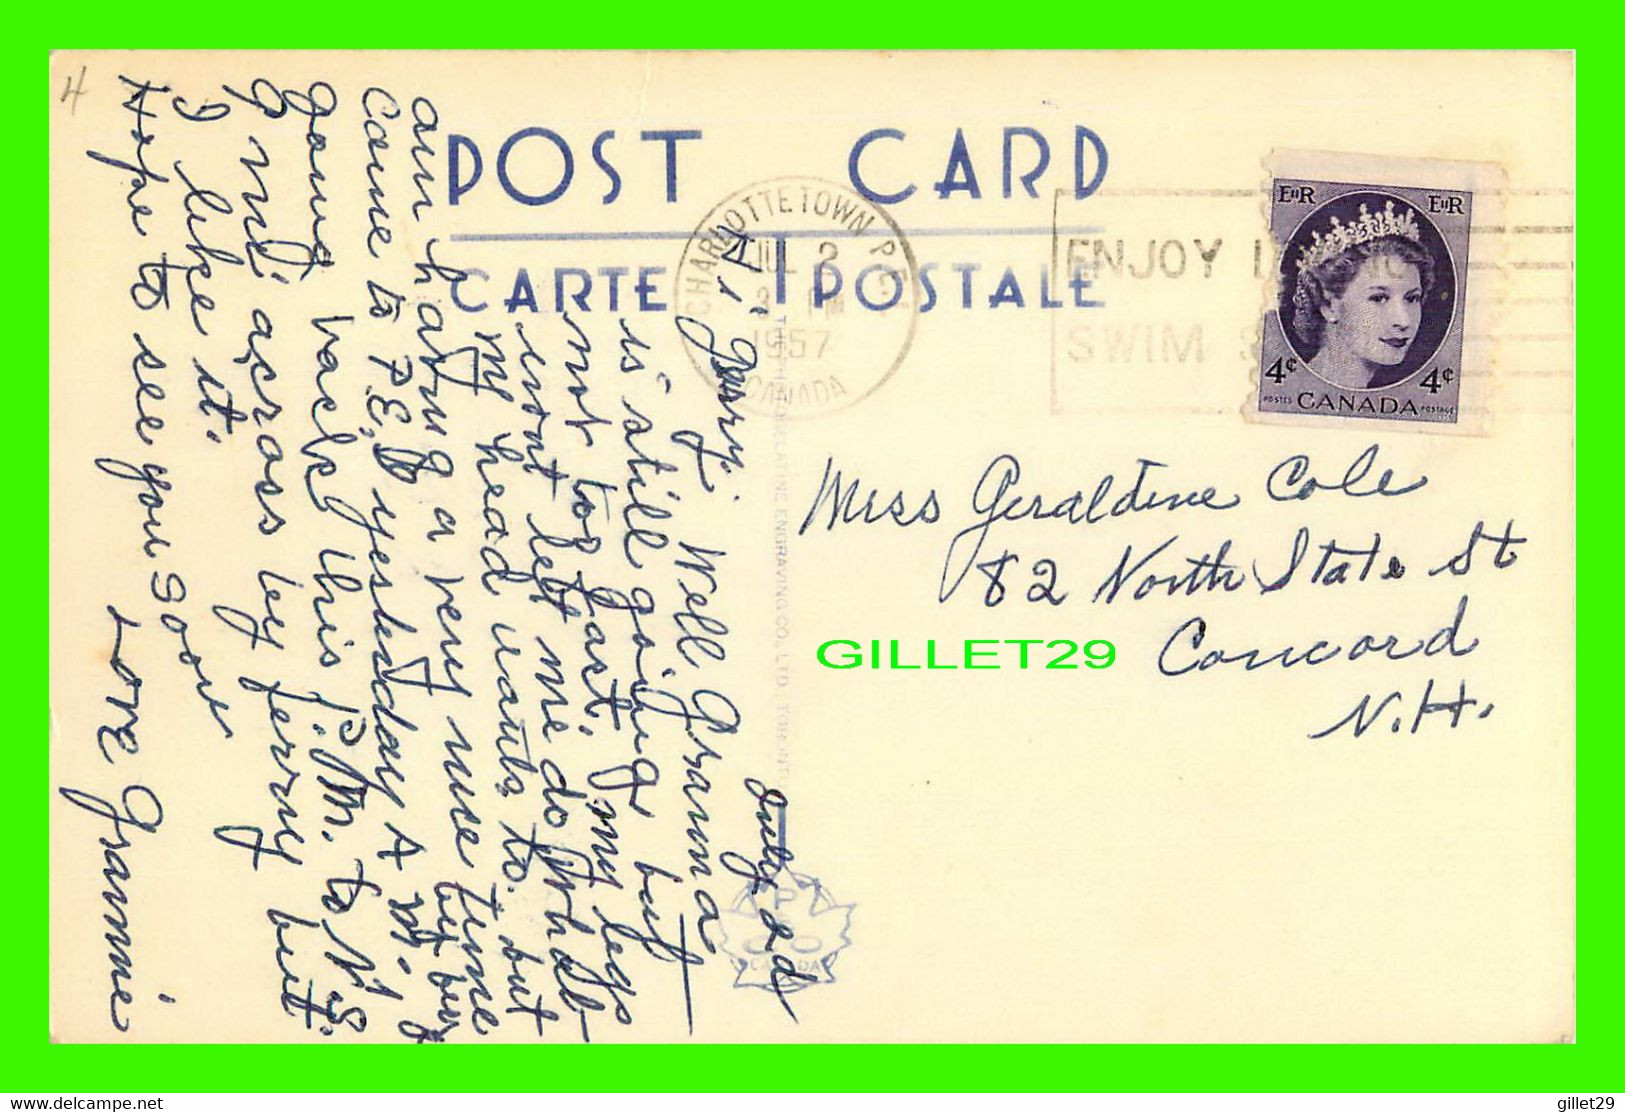 4
POST CARD
CARTE POSTALE
CHARLOTTETOWN P.E.I.
JUL 2
PM
1957
CANADA
ENJOY
SWIM
EIIR EIIR
4¢ 4¢
POSTES CANADA POSTAGE
THE PHOTOGELATINE ENGRAVING CO., LTD., TORONTO
CANADA
July 2nd
Hi' Gerry.
Well Gramma
is still going but
not too fast, my legs
wont let me do what
my head wants to. but
am having a very nice time
Came to P.E.I. yesterday A.M. by
going back this P.M. to N.S
and across by ferry but
I like it.
Hope to see you soon
Love Grammie
Miss Geraldine Cole
82 North State St
Concord
N.H.
GILLET29
www.delcampe.net
gillet29